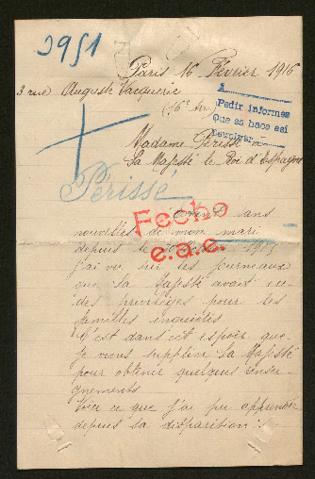 3951
Paris 16 Février 1916
3 rue Auguste Vacquerie
(16e Arr)
Pedir informes
Que se hace así
Madame Périssé à
Sa Majesté le Roi d'Espagne
Périssé
Fecho
e.a.e.
Etant sans
nouvelles de mon mari
depuis le 1915
j'ai vu sur les journaux
que Sa Majesté avait eu
des privilèges pour les
familles inquiètes
C'est dans cet espoir que
je vous supplie Sa Majesté
pour obtenir quelques rensei-
gnements
Voici ce que j'ai pu apprendre
depuis sa disparition :